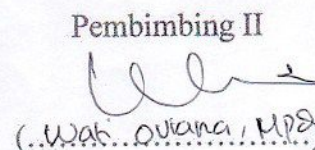 Pembimbing II
(..Wati..Oviana, MPd